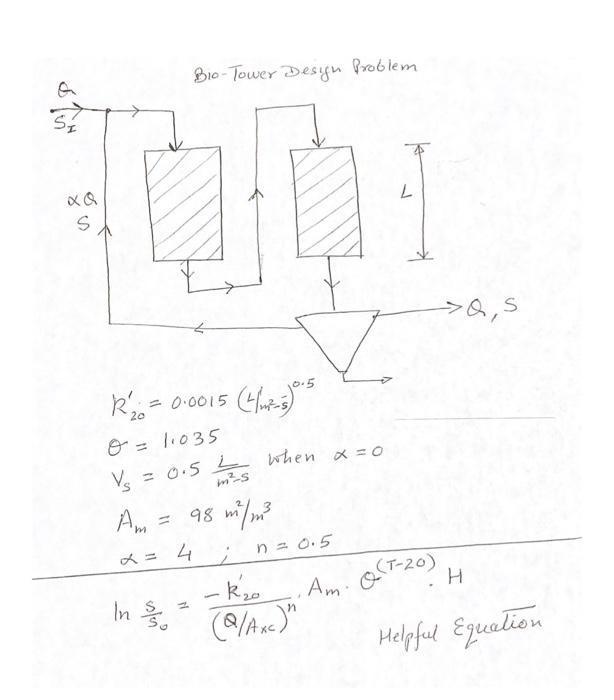 Bio-Tower Design Problem
Q
S_I
αQ
S
L
Q, S
k'₂₀ = 0.0015 (L/m²-s)^0.5
θ = 1.035
V_s = 0.5 L/m²-s when α = 0
A_m = 98 m²/m³
α = 4 ; n = 0.5
ln S/S₀ = -k'₂₀/(Q/A_xc)ⁿ . A_m . θ^(T-20) . H
Helpful Equation